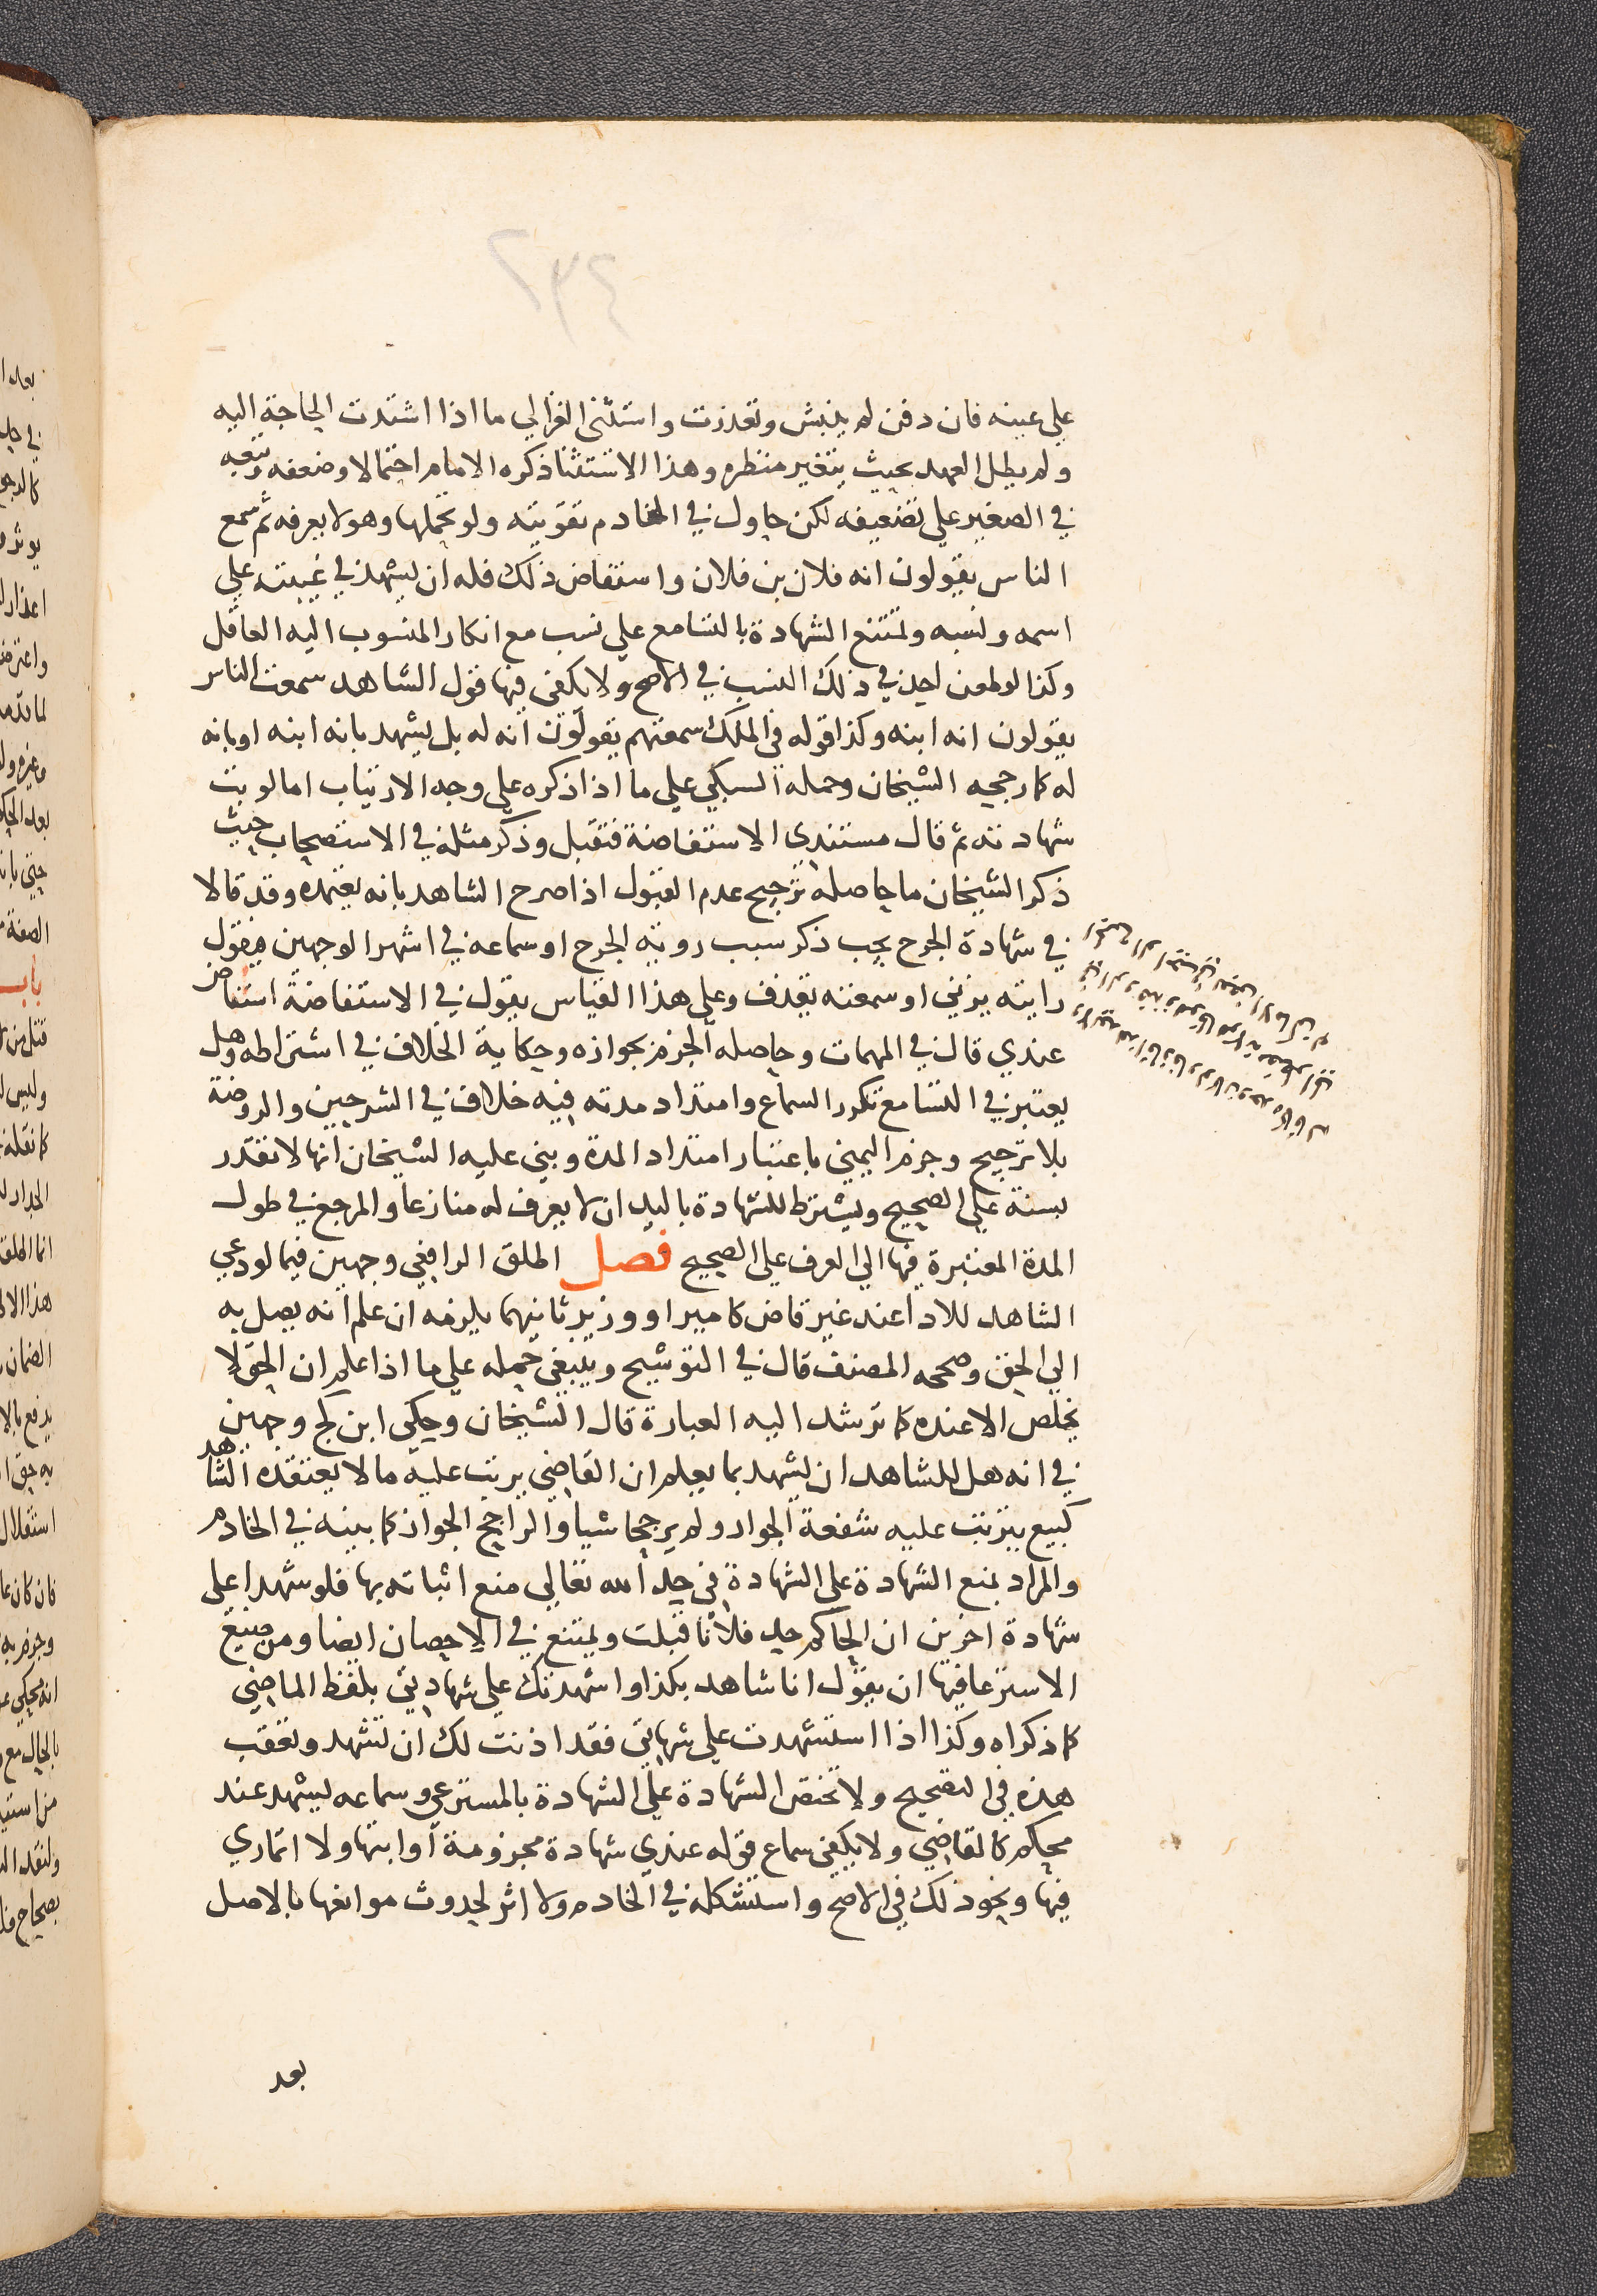 ٢٣٤
علي عينه فان دفن لم ينبش وتعذرت واستثنى الغزالي ما اذا اشتدت الحاجة اليه
ولم يطل العهد بحيث يتغير منظره وهذا الاستثنا ذكره الامام احتمالا وضعفه وتبعه
في الصغير علي تضعيفه لكن حاول في الخادم تقويته ولو تحملها وهو لا يعرفه ثم سمع
الناس يقولون انه فلان بن فلان واستفاض ذلك فله ان يشهد في غيبته علي
اسمه ونسبه ويمتنع الشهادة بالتسامع علي نسب مع انكار المنسوب اليه العاقل
وكذا لو طعن احد في ذلك النسب في الاصح ولا يكفي فيها قول الشاهد سمعت الناس
يقولون انه ابنه وكذا قوله في الملك سمعتهم يقولون انه له بل يشهد بانه ابنه او بانه
له كما رجحه الشيخان وحمله السبكي علي ما اذا ذكره علي وجه الارتياب اما لو بت
شهادته ثم قال مستندي الاستفاضة فتقبل وذكر مثله في الاستصحاب حيث
ذكر الشيخان ما حاصله ترجيح عدم القبول اذا صرح الشاهد بانه يعتمده وقد قالا
في شهادة الجرح يجب ذكر سبب روية الجرح او سماعه في اشهر الوجهين فيقول
رايته يزني او سمعته يقذف وعلي هذا القياس يقول في الاستفاضة استفاض
عندي قال في المهمات وحاصله الجزم بجوازه وحكاية الخلاف في اشتراطه وهل
يعتبر في التسامع تكرر السماع وامتداد مدته فيه خلاف في الشرحين والروضة
بلا ترجيح وجزم اليمني باعتبار امتداد المدة وبني عليه الشيخان انها لا تقدر
بسنة علي الصحيح ويشترط للشهادة باليد ان لا يعرف له منازعا والمرجع في طول
المدة المعتبرة فيها الي العرف علي الصحيح فصل اطلق الرافعي وجهين فيما لو دعي
الشاهد للادا عند غير قاض كامير او وزير ثانيهما يلزمه ان علم انه يصل به
الي الحق وصححه المصنف قال في التوشيح وينبغي حمله علي ما اذا علم ان الحق لا
يخلص الا عنده كما ترشد اليه العبارة قال الشيخان وحكي ابن كج وجهين
في انه هل للشاهد ان يشهد بما يعلم ان القاضي يرتب عليه ما لا يعتقده الشاهد
كبيع يترتب عليه شفعة الجوار ولم يرجحا شيا والراجح الجواز كما بينه في الخادم
والمراد بمنع الشهادة علي الشهادة في حد الله تعالي منع اثباته بها فلو شهدا علي
شهادة اخرين ان الحاكم حد فلانا قبلت ويمتنع في الاحصان ايضا ومن صيغ
الاسترعا فيها ان يقول انا شاهد بكذا واشهدتك علي شهادتي بلفظ الماضي
كما ذكراه وكذا اذا استشهدت علي شهاتي فقد اذنت لك ان تشهد وتعقب
هذه في التصحيح ولا تختص الشهادة علي الشهادة بالمسترعي وسماعه ليشهد عند
محكم كالقاضي ولا يكفي سماع قوله عندي شهادة مجزومة او ابتها ولا اتماري
فيها ونحو ذلك في الاصح واستشكله في الخادم ولا اثر لحدوث موانعها بالاصل
بعد